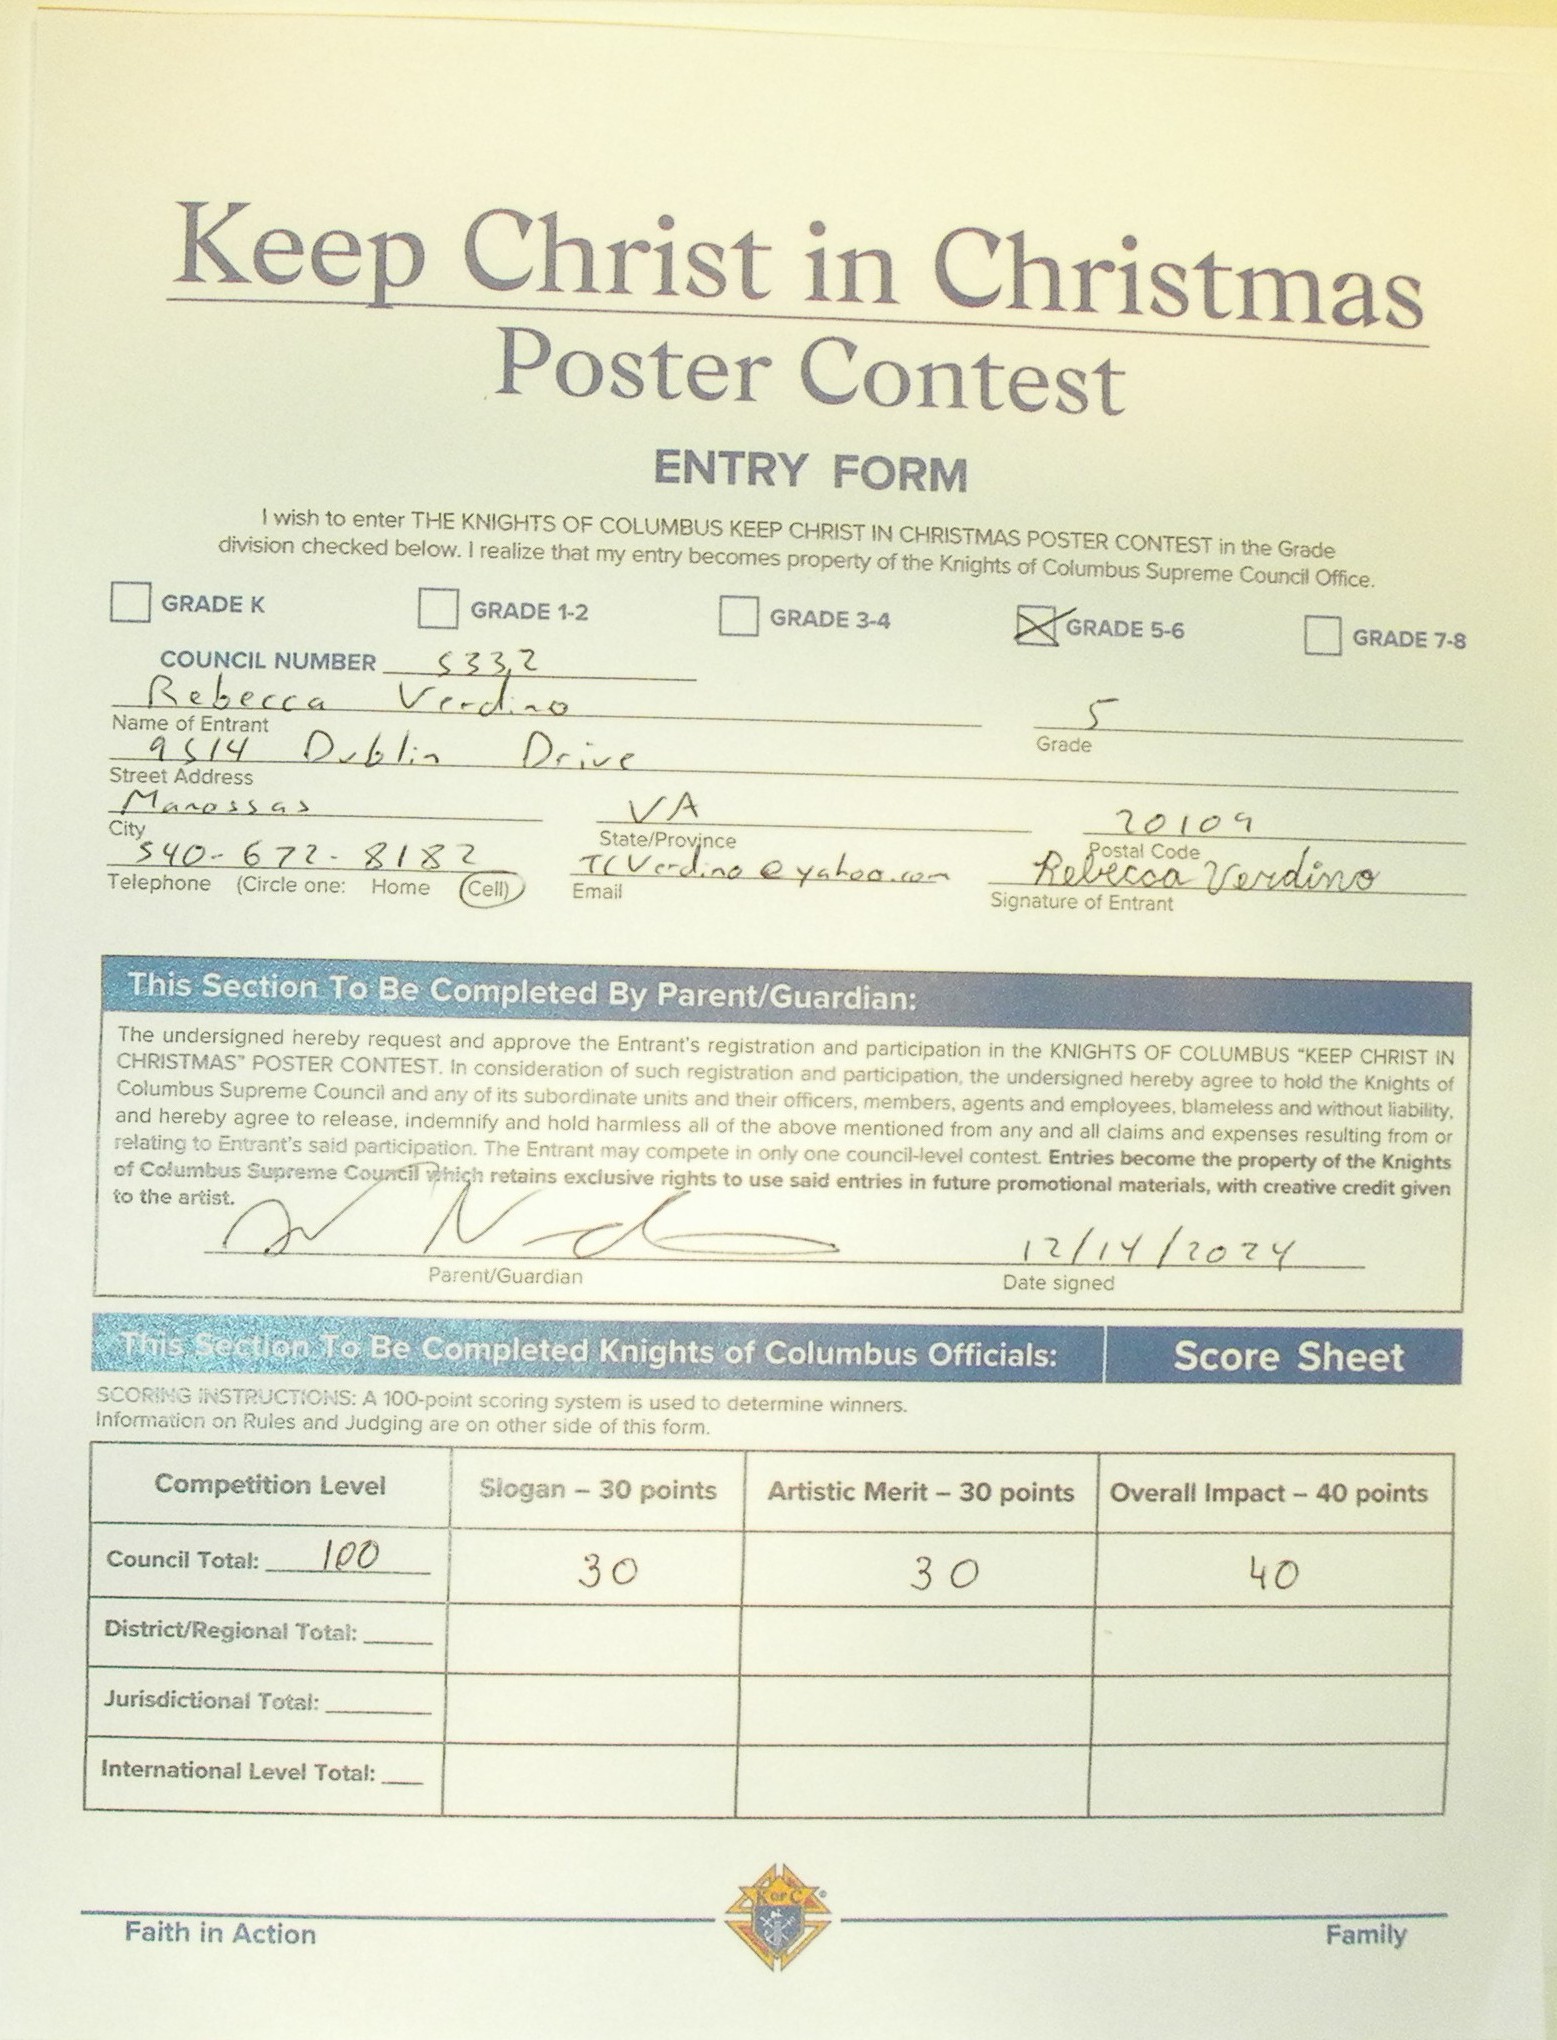 Keep Christ in Christmas
Poster Contest
ENTRY FORM
I wish to enter THE KNIGHTS OF COLUMBUS KEEP CHRIST IN CHRISTMAS POSTER CONTEST in the Grade
division checked below. I realize that my entry becomes property of the Knights of Columbus Supreme Council Office.
GRADE K GRADE 1-2 GRADE 3-4 GRADE 5-6 GRADE 7-8
COUNCIL NUMBER 5332
Rebecca Verdino 5
Name of Entrant Grade
9514 Dublin Drive
Street Address
Manassas VA 20109
City State/Province Postal Code
540-672-8182 TCVerdino@yahoo.com Rebecca Verdino
Telephone (Circle one: Home Cell) Email Signature of Entrant
This Section To Be Completed By Parent/Guardian:
The undersigned hereby request and approve the Entrant's registration and participation in the KNIGHTS OF COLUMBUS "KEEP CHRIST IN
CHRISTMAS" POSTER CONTEST. In consideration of such registration and participation, the undersigned hereby agree to hold the Knights of
Columbus Supreme Council and any of its subordinate units and their officers, members, agents and employees, blameless and without liability,
and hereby agree to release, indemnify and hold harmless all of the above mentioned from any and all claims and expenses resulting from or
relating to Entrant's said participation. The Entrant may compete in only one council-level contest. Entries become the property of the Knights
of Columbus Supreme Council which retains exclusive rights to use said entries in future promotional materials, with creative credit given
to the artist.
12/14/2024
Parent/Guardian Date signed
This Section To Be Completed Knights of Columbus Officials: Score Sheet
SCORING INSTRUCTIONS: A 100-point scoring system is used to determine winners.
Information on Rules and Judging are on other side of this form.
Competition Level Slogan – 30 points Artistic Merit – 30 points Overall Impact – 40 points
Council Total: 100 30 30 40
District/Regional Total:
Jurisdictional Total:
International Level Total:
K of C
Faith in Action Family